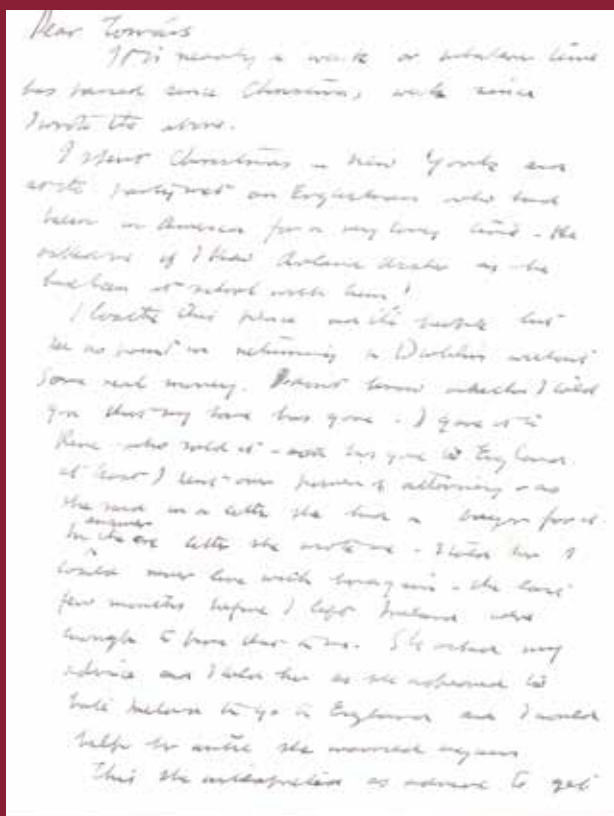 Dear Tomás
It is nearly a week or whatever time
has passed since Christmas, week since
I wrote the above.
I spent Christmas in New York and
at the party met an Englishman who had
been in America for a very long time - He
asked me if I knew as he
had been at school with him!
I loathe this place and its people but
see no point in returning to Dublin without
some real money. I don't know whether I told
you that my house has gone - I gave it to
who sold it - and has gone to England.
at least I sent over power of attorney as
she said in a letter she had a buyer for it.
In answer the one letter she wrote me - I told her I
could never live with her again - the last
few months before I left Ireland were
enough to prove that to me. She asked my
advice and I told her as she appeared to
hate Ireland to go to England and I would
help her until she married again
This she interpreted as advice to get